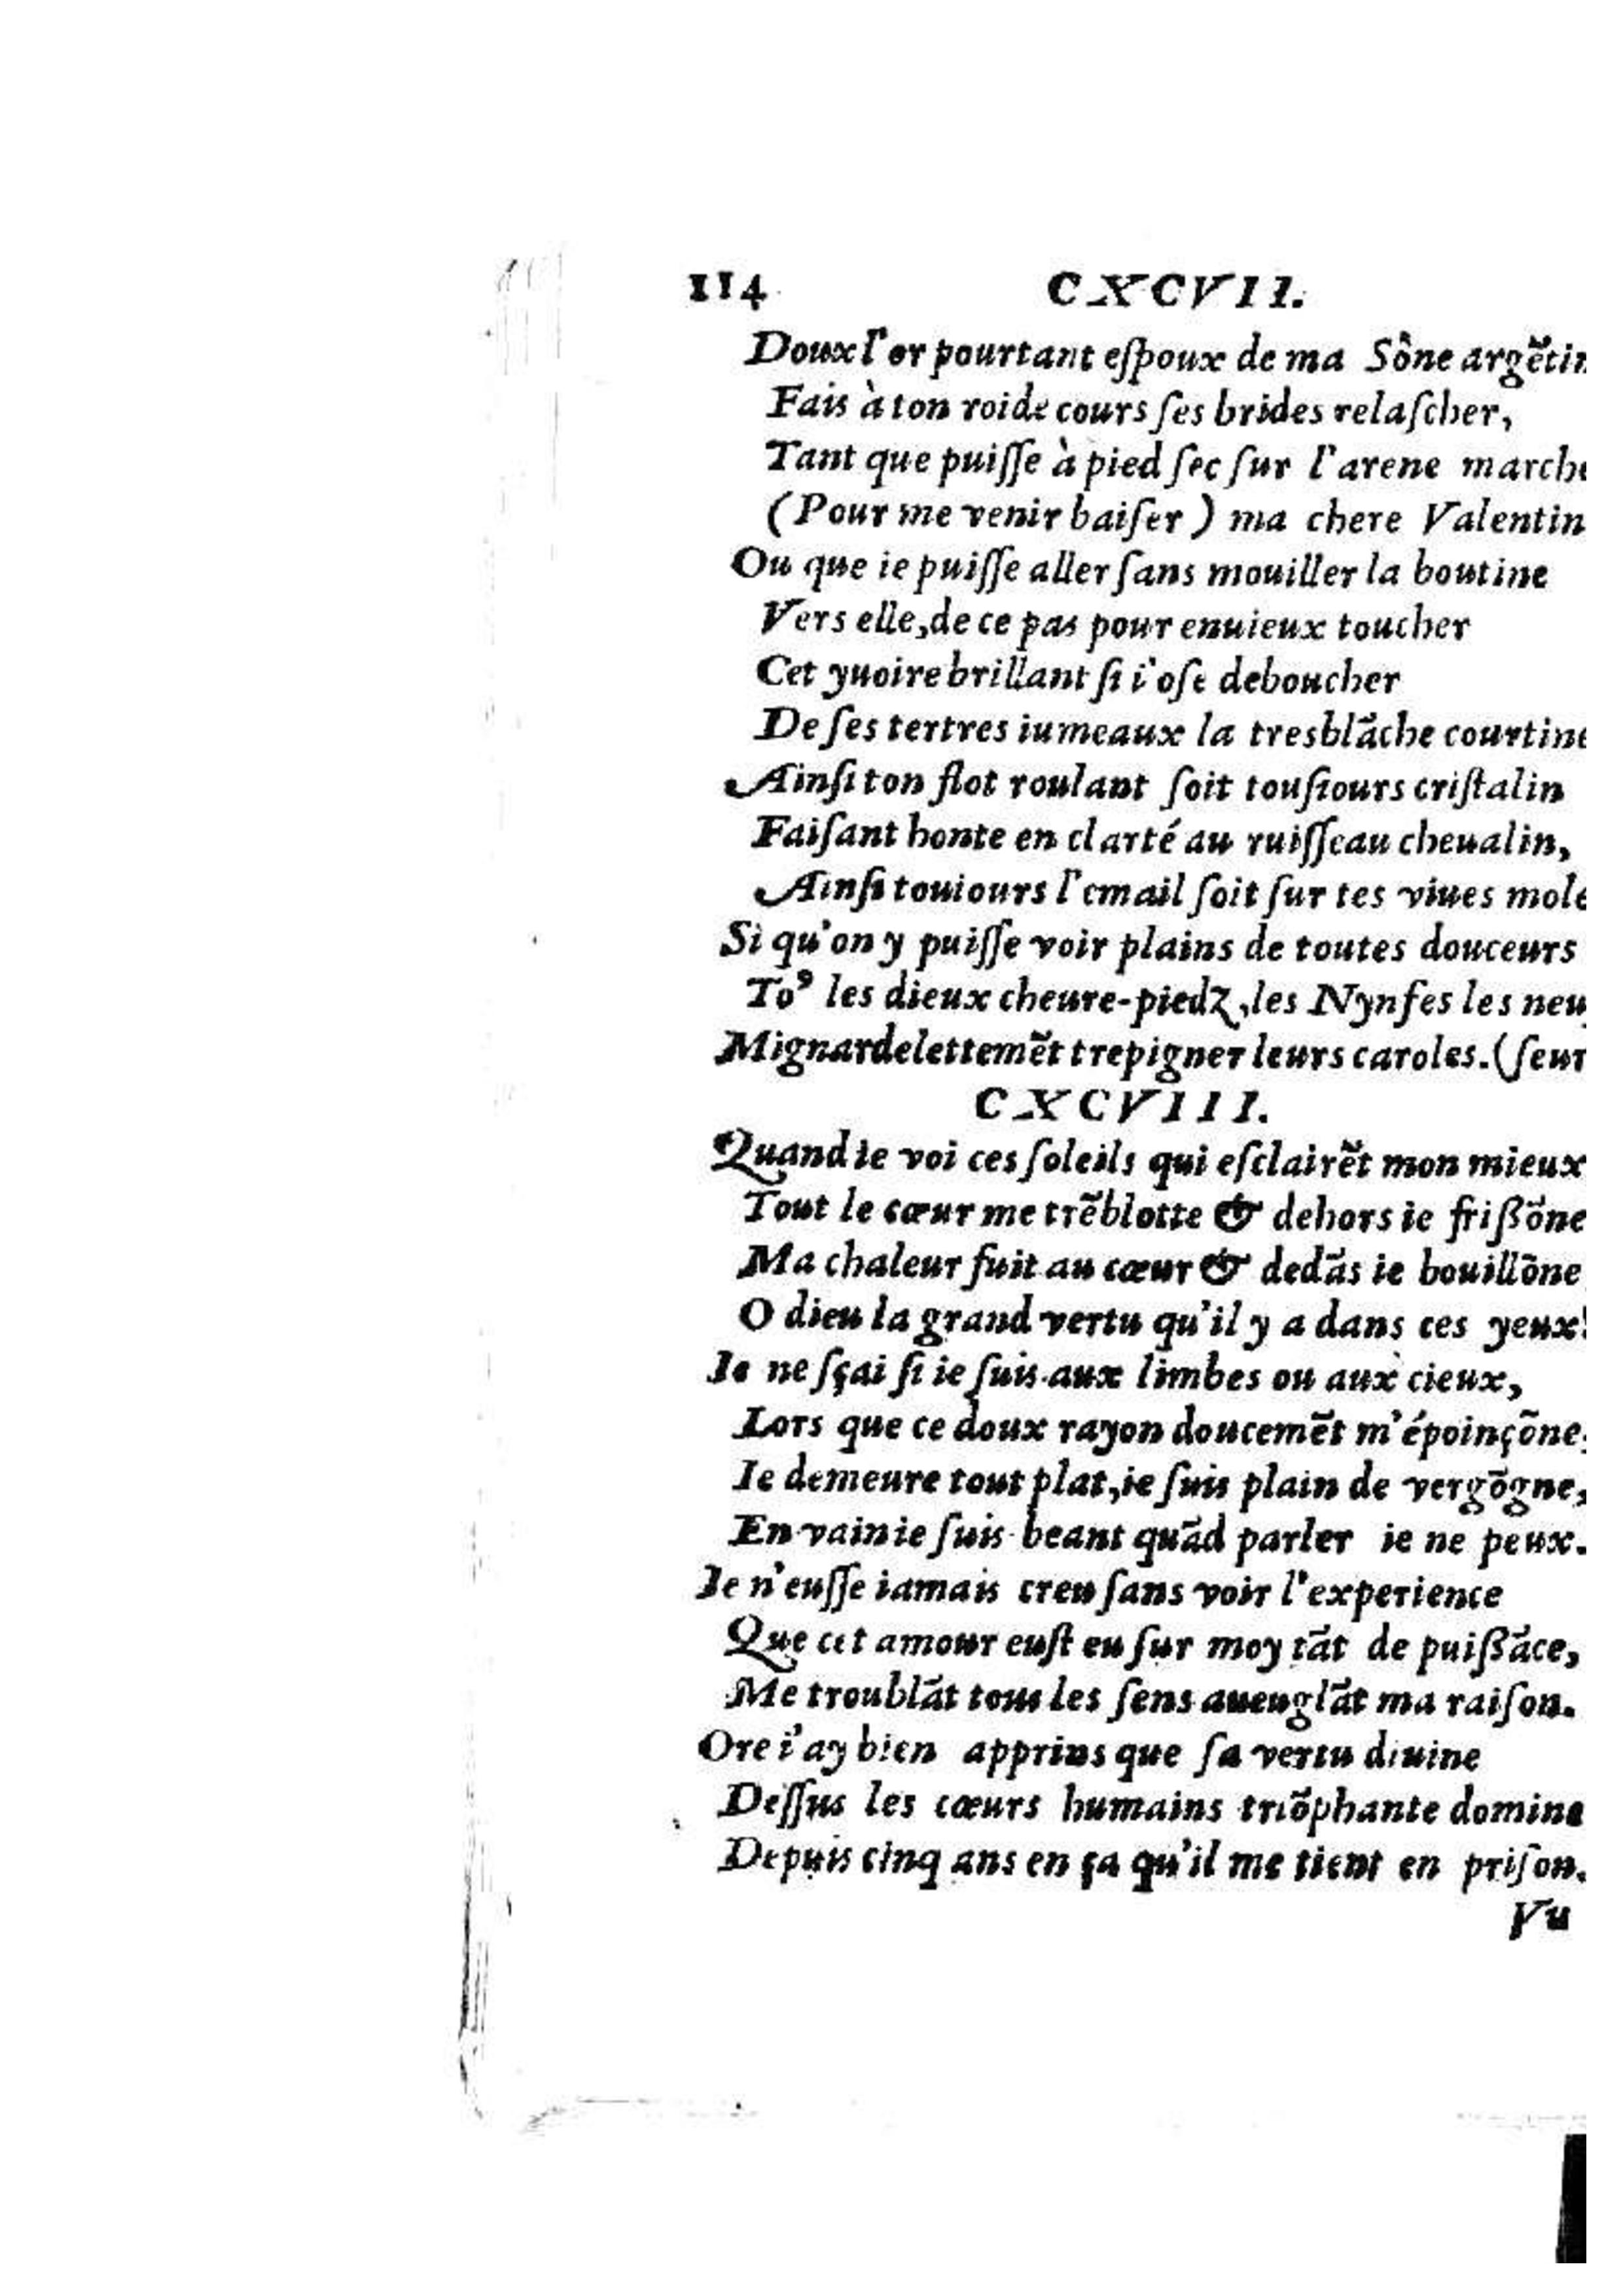 114 CXCVII.
Doux l'or pourtant eſpoux de ma Sône argẽtin
Fais à ton roide cours ſes brides relaſcher,
Tant que puiſſe à pied ſec ſur l'arene marche
(Pour me venir baiſer) ma chere Valentin
Ou que ie puiſſe aller ſans mouiller la boutine
Vers elle, de ce pas pour enuieux toucher
Cet yuoire brillant ſi i'oſe deboucher
De ſes tertres iumeaux la tresblãche courtine
Ainſi ton flot roulant ſoit touſiours criſtalin
Faiſant honte en clarté au ruiſſeau cheualin,
Ainſi touiours l'email ſoit ſur tes viues mole
Si qu'on y puiſſe voir plains de toutes douceurs
Toꝰ les dieux cheure-piedz, les Nynfes les neu
Mignardelettemẽt trepigner leurs caroles. (ſeur
CXCVIII.
Quand ie voi ces ſoleils qui eſclairẽt mon mieux
Tout le cœur me trẽblotte & dehors ie frißõne
Ma chaleur fuit au cœur & dedãs ie bouillõne
O dieu la grand vertu qu'il y a dans ces yeux!
Ie ne ſçai ſi ie ſuis aux limbes ou aux cieux,
Lors que ce doux rayon doucemẽt m'époinçõne,
Ie demeure tout plat, ie ſuis plain de vergõgne,
En vain ie ſuis beant quãd parler ie ne peux.
Ie n'euſſe iamais creu ſans voir l'experience
Que cet amour euſt eu ſur moy tãt de puißãce,
Me troublãt tous les ſens aueuglãt ma raiſon.
Ore i'ay bien apprins que ſa vertu diuine
Deſſus les cœurs humains triõphante domine
Depuis cinq ans en ça qu'il me tient en priſon.
Vu